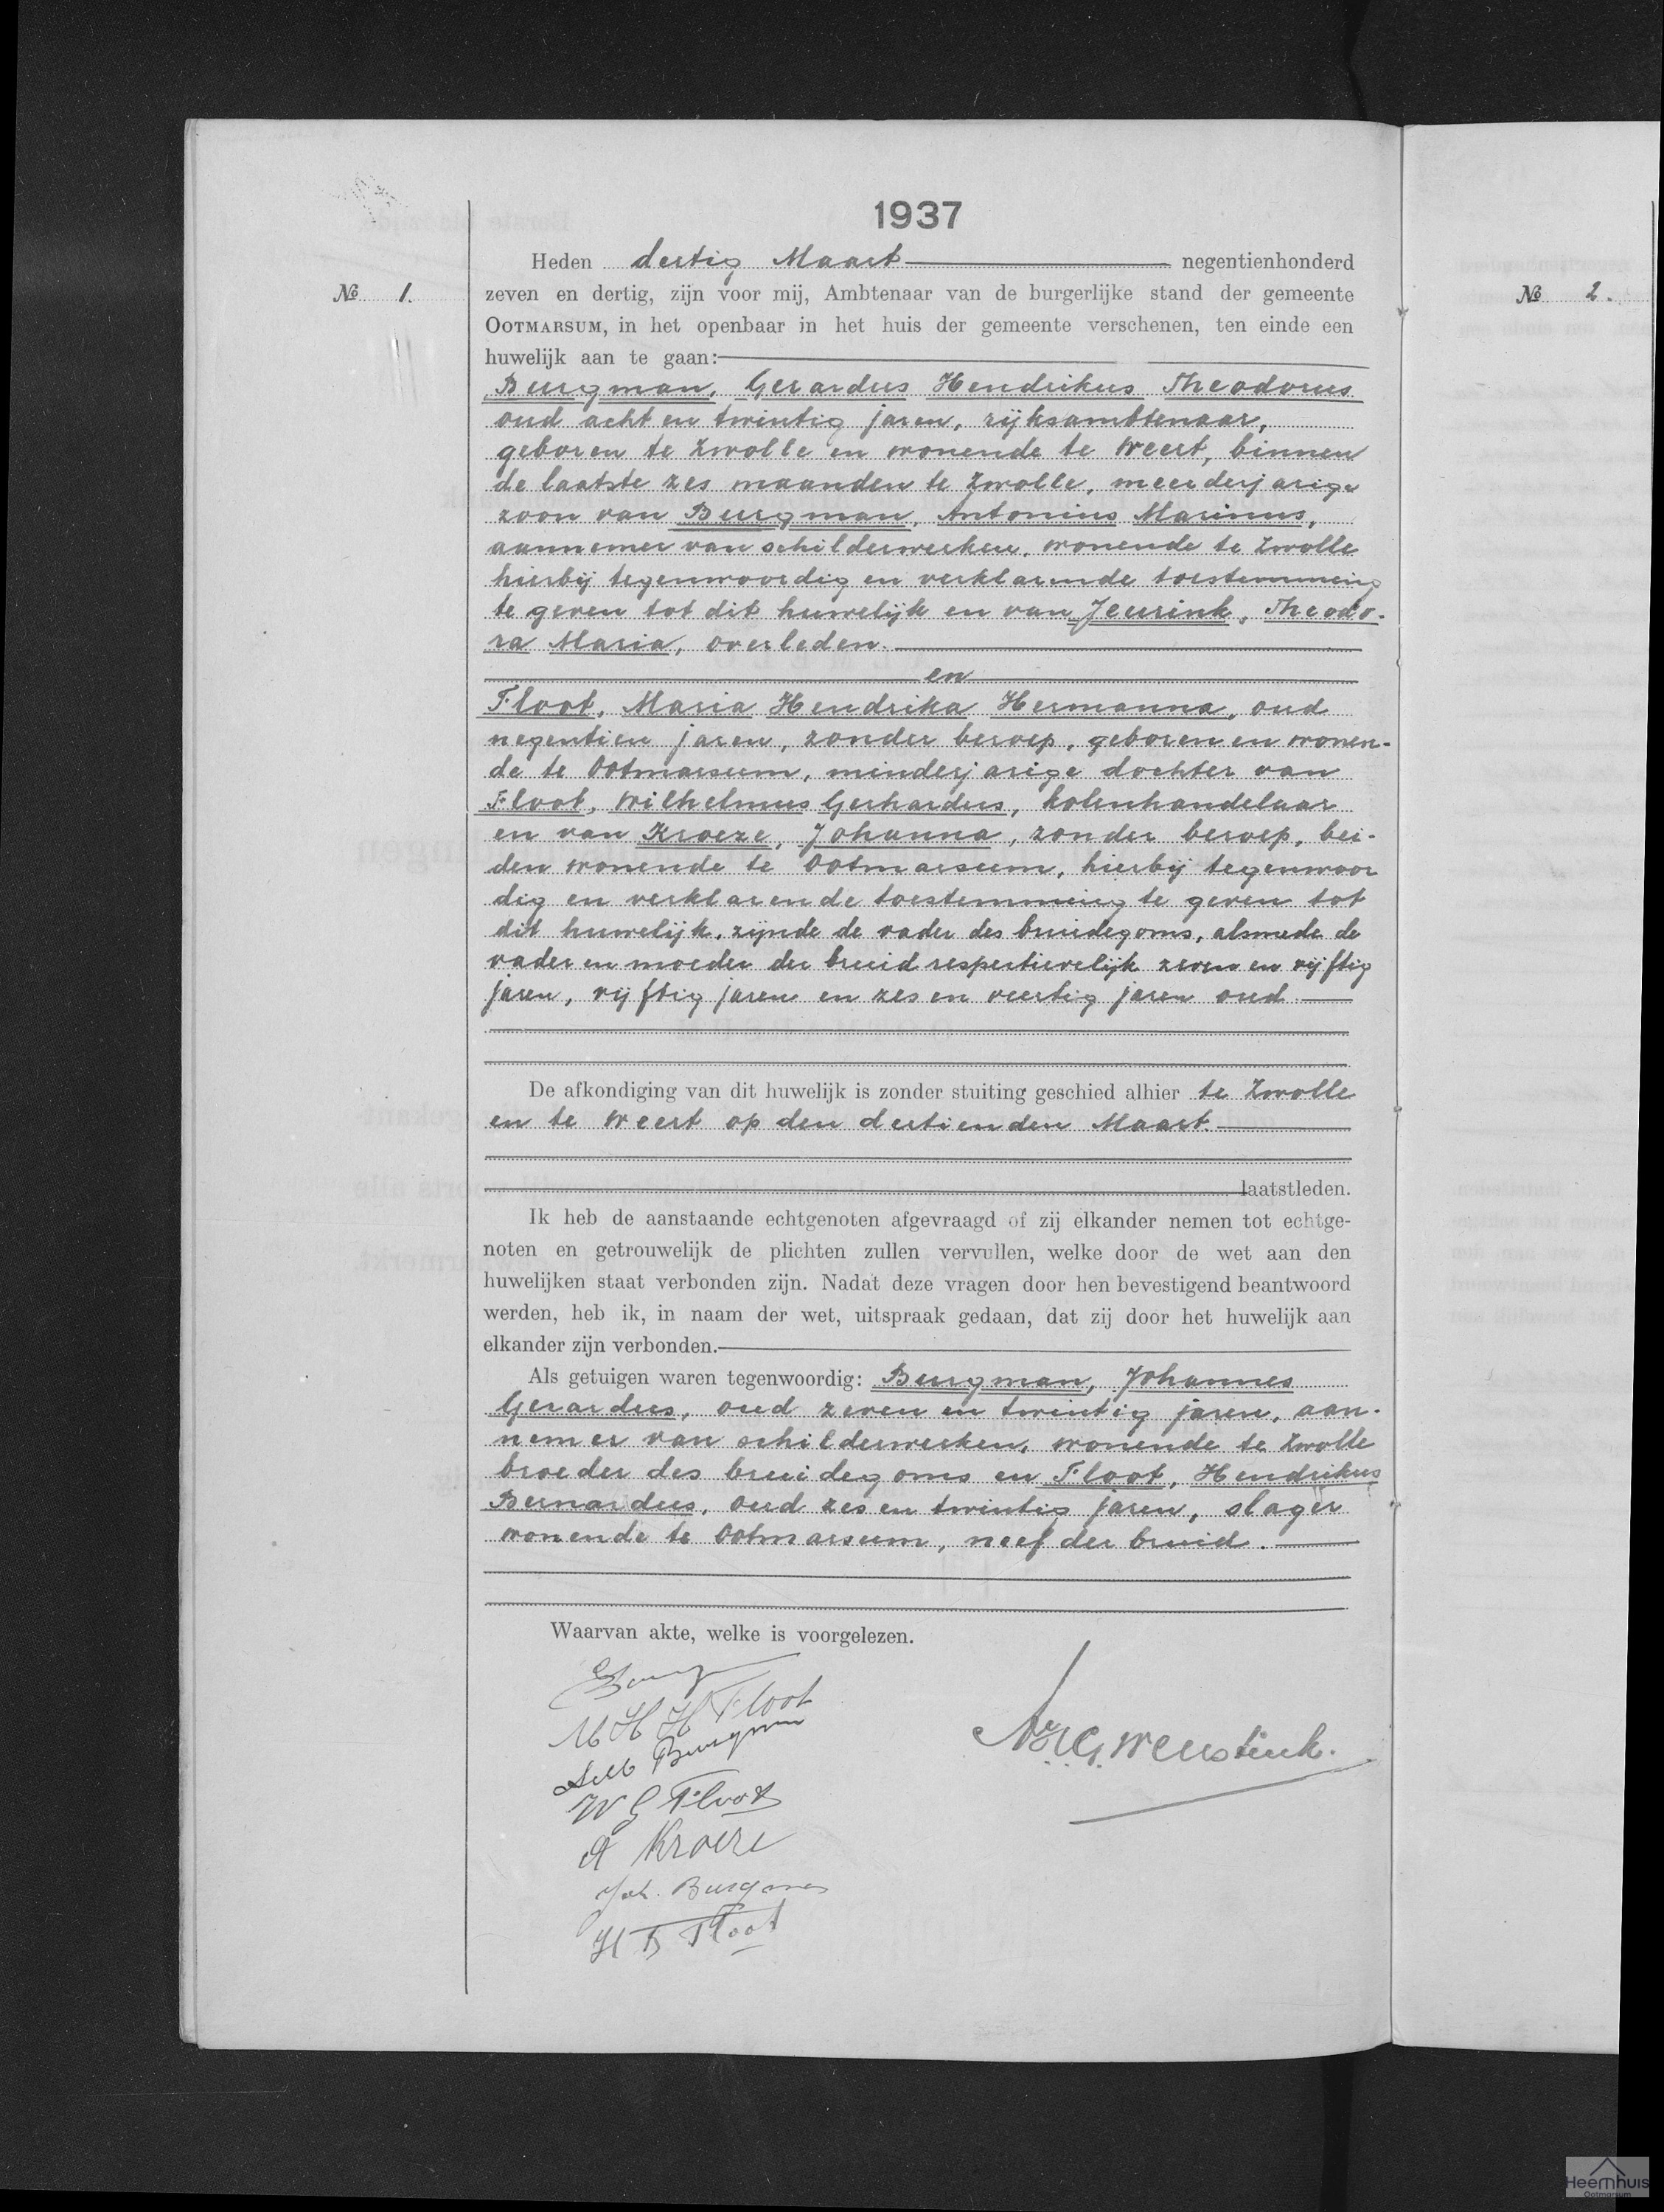 1937
Heden dertig Maart negentienhonderd
No 1.
zeven en dertig, zijn voor mij, Ambtenaar van de burgerlijke stand der gemeente
OOTMARSUM, in het openbaar in het huis der gemeente verschenen, ten einde een
huwelijk aan te gaan:
Burgman, Gerardus Hendrikus Theodorus
oud acht en twintig jaren, rijksambtenaar,
geboren te Zwolle en wonende te Weert, binnen
de laatste zes maanden te Zwolle, meerderjarige
zoon van Burgman, Antonius Marinus,
aannemer van schilderwerken, wonende te Zwolle
hierbij tegenwoordig en verklarende toestemming
te geven tot dit huwelijk en van Jeurink, Theodo-
ra Maria, overleden.
en
Floot, Maria Hendrika Hermanna, oud
negentien jaren, zonder beroep, geboren en wonen-
de te Ootmarsum, minderjarige dochter van
Floot, Wilhelmus Gerhardus, kolenhandelaar
en van Kroeze, Johanna, zonder beroep, bei-
den wonende te Ootmarsum, hierbij tegenwoor
dig en verklarende toestemming te geven tot
dit huwelijk, zijnde de vader des bruidegoms, alsmede de
vader en moeder der bruid respectievelijk zeven en vijftig
jaren, vijftig jaren en zes en veertig jaren oud
De afkondiging van dit huwelijk is zonder stuiting geschied alhier te Zwolle
en te Weert op den dertienden Maart.
laatstleden.
Ik heb de aanstaande echtgenoten afgevraagd of zij elkander nemen tot echtge-
noten en getrouwelijk de plichten zullen vervullen, welke door de wet aan den
huwelijken staat verbonden zijn. Nadat deze vragen door hen bevestigend beantwoord
werden, heb ik, in naam der wet, uitspraak gedaan, dat zij door het huwelijk aan
elkander zijn verbonden.
Als getuigen waren tegenwoordig: Burgman, Johannes
Gerardus, oud zeven en twintig jaren, aan-
nemer van schilderwerken, wonende te Zwolle
broeder des bruidegoms en Floot, Hendrikus
Bernardus, oud zes en twintig jaren, slager
wonende te Ootmarsum, neef der bruid.
Waarvan akte, welke is voorgelezen.
M H H Floot
Burgman
W G Floot
Kroeze
Joh. Burgman
H B Floot
No 2.
Heemhuis
Ootmarsum